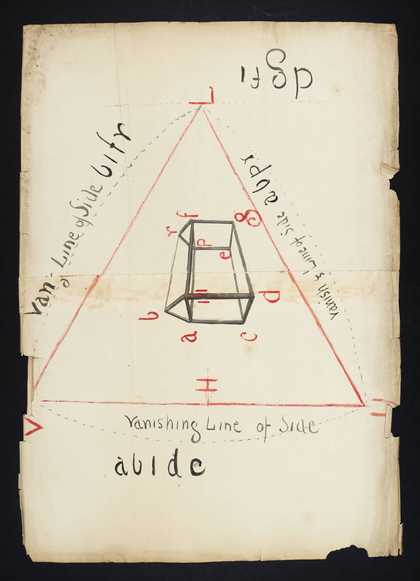 L
Van g Line of Side bifr
Vanish g Line of Side
f
g
r
p
e
m
d
b
a
c
H
V
I
Vanishing Line of Side
abidc